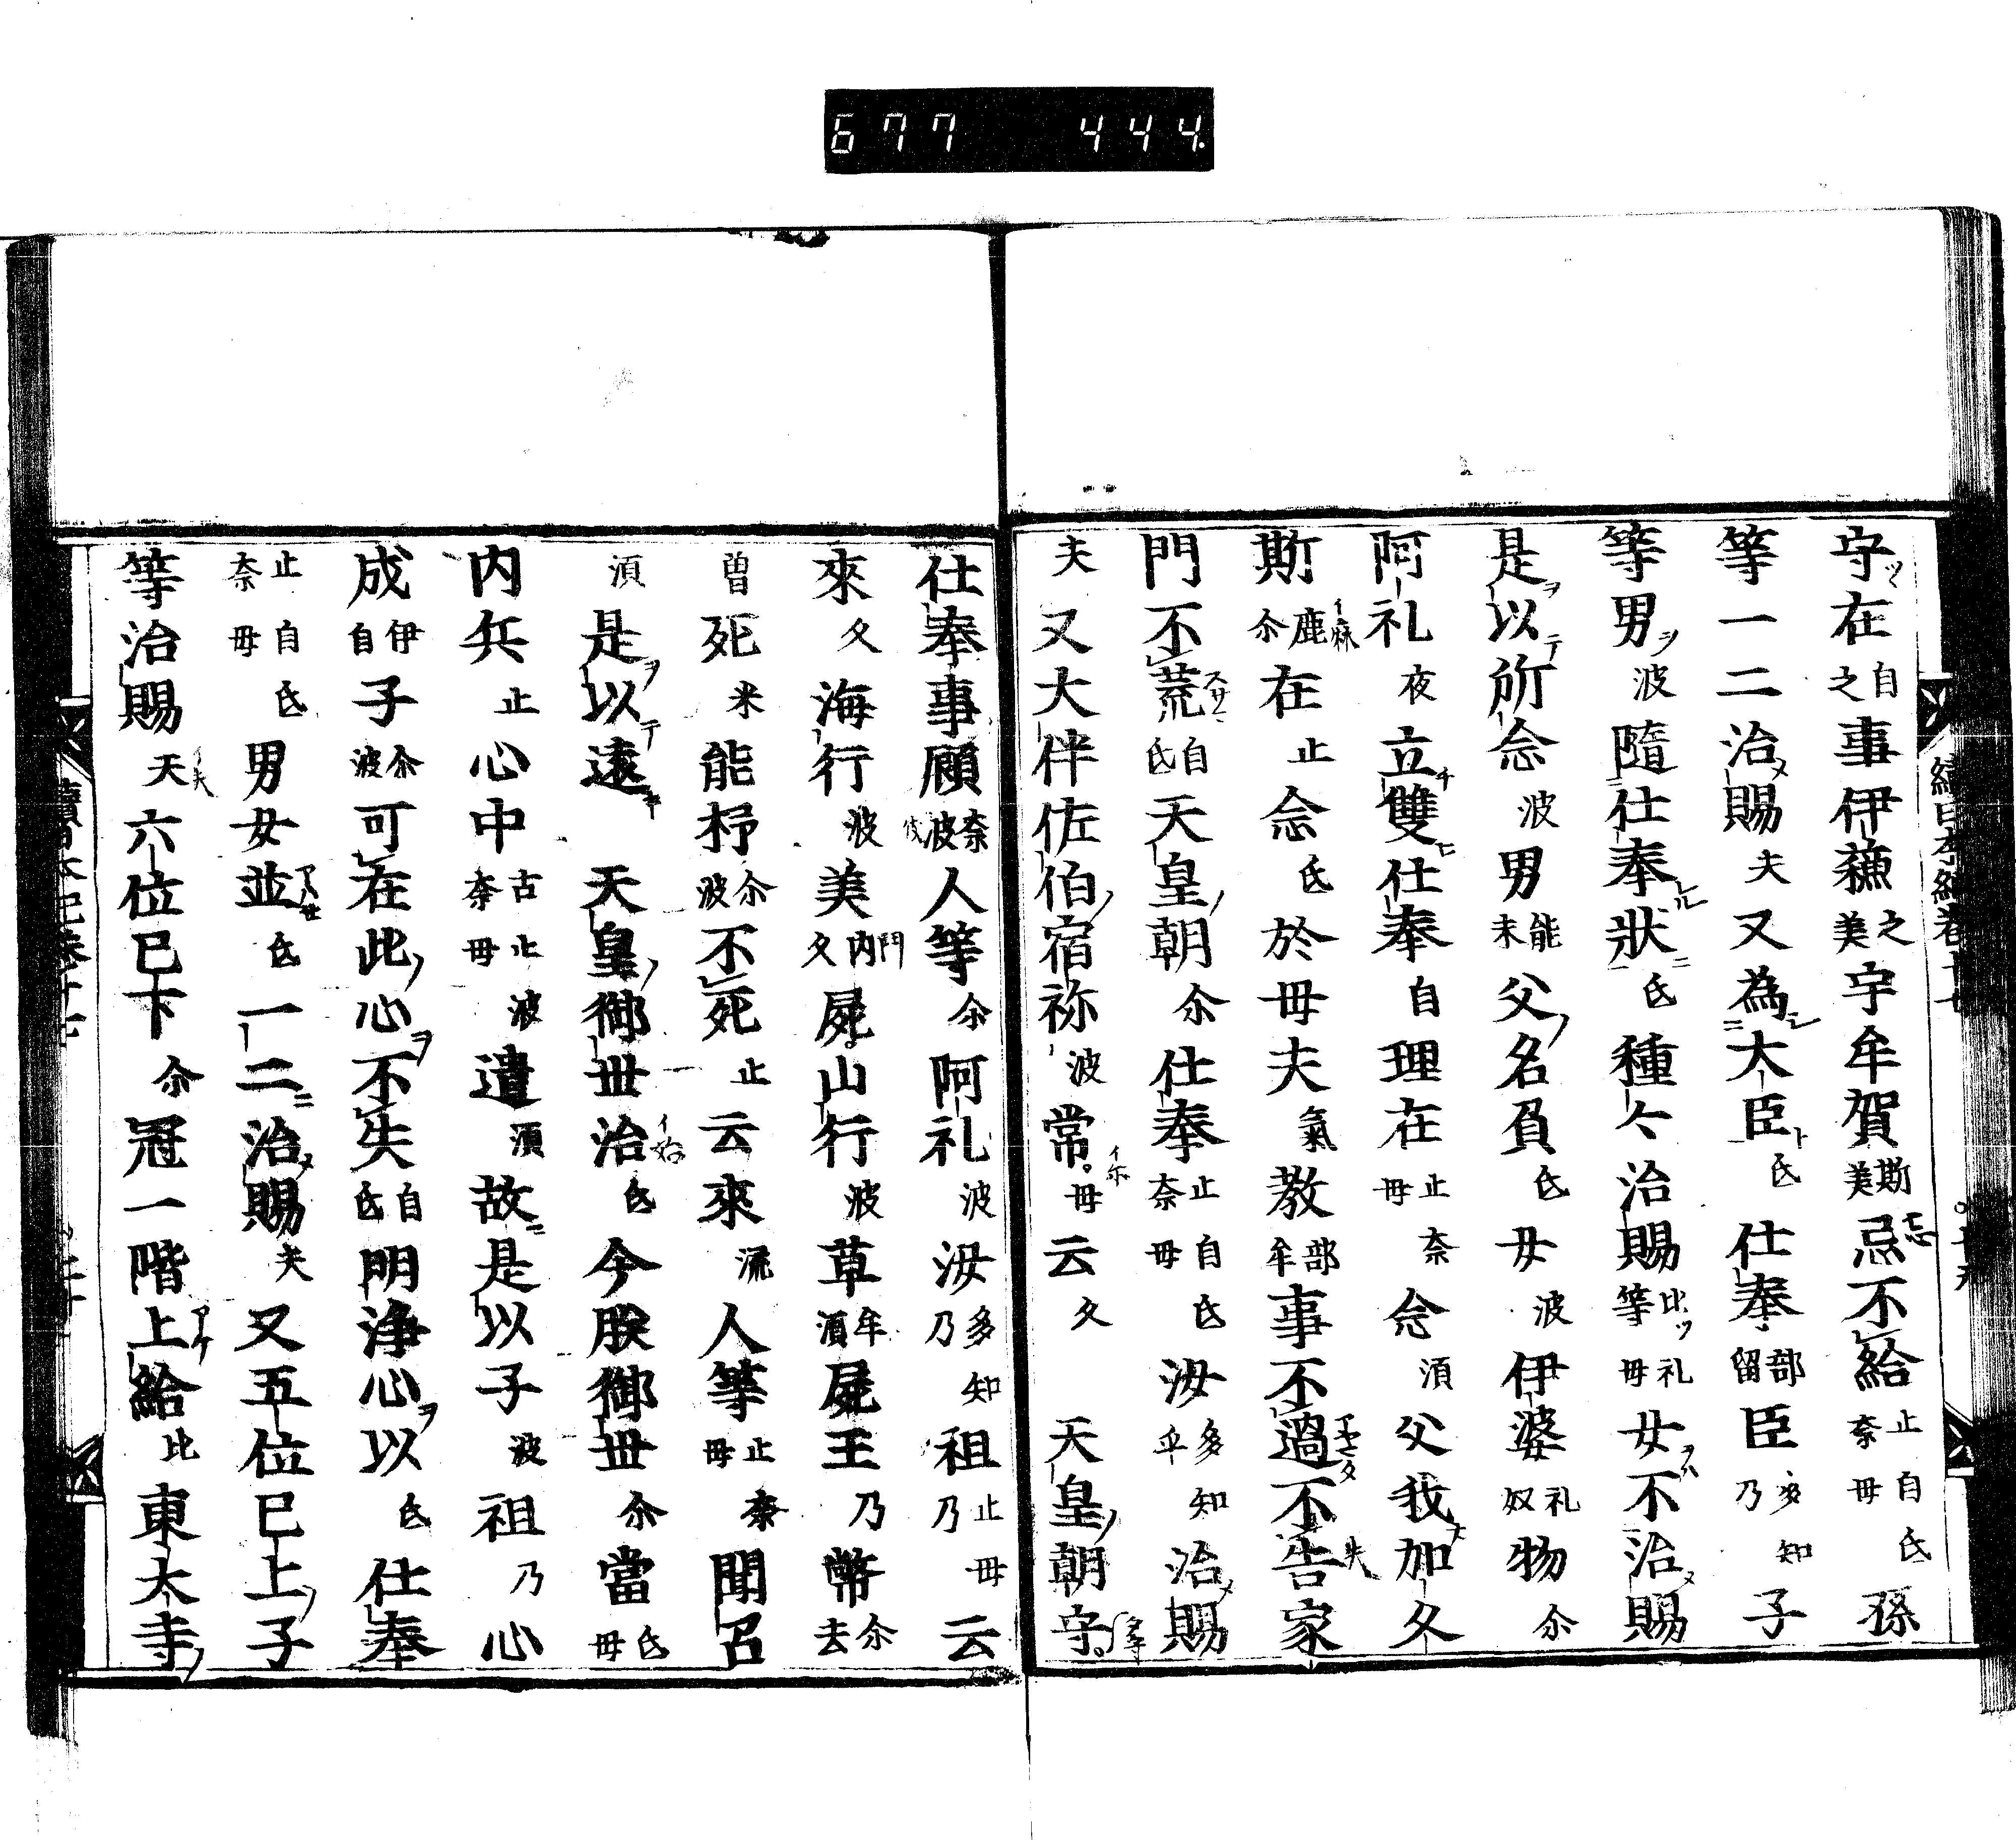 677 444.
守在自之事伊蘓之美宇牟賀斯美忌不給止奈毋自氐孫
等一二治賜夫又為大臣氐仕奉部留臣多知乃子
等男波隨仕奉狀氐種々治賜比ツ礼等毋女不治賜
是以所念波男能未父名負氐女波伊婆礼奴物尒
阿礼夜立雙仕奉自理在止毋奈念湏父我加久
斯鹿尒在止念氐於毋夫氣教部牟事不過不告家
門不荒自氐天皇朝尒仕奉止奈自毋氐汝多乎知治賜
夫又大伴佐伯宿祢波常毋云久天皇朝守
仕奉事顧奈波人等尒阿礼波汝多乃知祖止乃毋云
來久海行波美內久屍山行波草牟湏屍王乃幣尒去
曽死米能杼尒波不死止云來流人等止毋奈聞召
湏是以遠天皇御世治氐今朕御世尒當氐毋
内兵止心中古止奈毋波遣湏故是以子波祖乃心
成伊自子尒波可在此心不失自氐明淨心以氐仕奉
止奈自毋氐男女並氐一二治賜夫又五位已上子
等治賜夫六位已下尒冠一階上給比東大寺